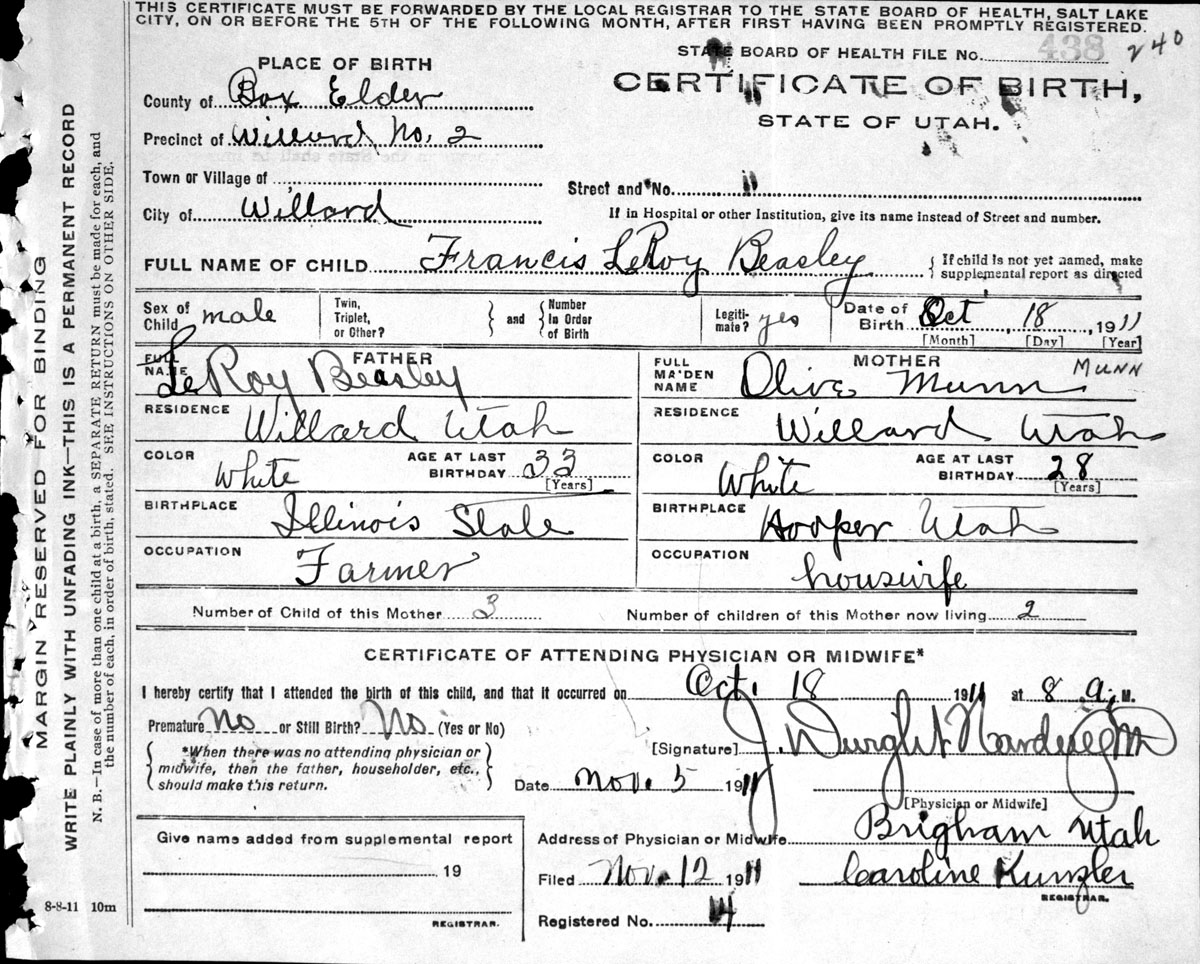 THIS CERTIFICATE MUST BE FORWARDED BY THE LOCAL REGISTRAR TO THE STATE BOARD OF HEALTH, SALT LAKE
CITY, ON OR BEFORE THE 5TH OF THE FOLLOWING MONTH, AFTER FIRST HAVING BEEN PROMPTLY REGISTERED.
STATE BOARD OF HEALTH FILE NO. 438 240
PLACE OF BIRTH
CERTIFICATE OF BIRTH,
STATE OF UTAH.
County of Box Elder
Precinct of Willard No. 2
Town or Village of
Street and No.
City of Willard
If in Hospital or other Institution, give its name instead of Street and number.
FULL NAME OF CHILD Francis LeRoy Beasley
If child is not yet named, make
supplemental report as directed
Sex of Child male
Twin, Triplet, or Other?
and
Number In Order of Birth
Legitimate? yes
Date of Birth Oct 18, 1911
[Month] [Day] [Year]
FATHER
FULL NAME LeRoy Beasley
RESIDENCE Willard Utah
COLOR White
AGE AT LAST BIRTHDAY 33
[Years]
BIRTHPLACE Illinois State
OCCUPATION Farmer
MOTHER
FULL MAIDEN NAME Olive Munn MUNN
RESIDENCE Willard Utah
COLOR White
AGE AT LAST BIRTHDAY 28
[Years]
BIRTHPLACE Hooper Utah
OCCUPATION houswife
Number of Child of this Mother 3
Number of children of this Mother now living 2
CERTIFICATE OF ATTENDING PHYSICIAN OR MIDWIFE*
I hereby certify that I attended the birth of this child, and that it occurred on Oct. 18 1911 at 8 a. M.
Premature No or Still Birth? No (Yes or No)
*When there was no attending physician or
midwife, then the father, householder, etc.,
should make this return.
[Signature] J. Dwight
Date Nov. 5 1911
[Physician or Midwife]
Give name added from supplemental report
19
REGISTRAR.
Address of Physician or Midwife Brigham Utah
Filed Nov. 12 1911
Caroline Kunzler
REGISTRAR.
Registered No. 14
MARGIN RESERVED FOR BINDING
WRITE PLAINLY WITH UNFADING INK—THIS IS A PERMANENT RECORD
N. B.—In case of more than one child at a birth, a SEPARATE RETURN must be made for each, and
the number of each, in order of birth, stated. SEE INSTRUCTIONS ON OTHER SIDE.
8-8-11 10m